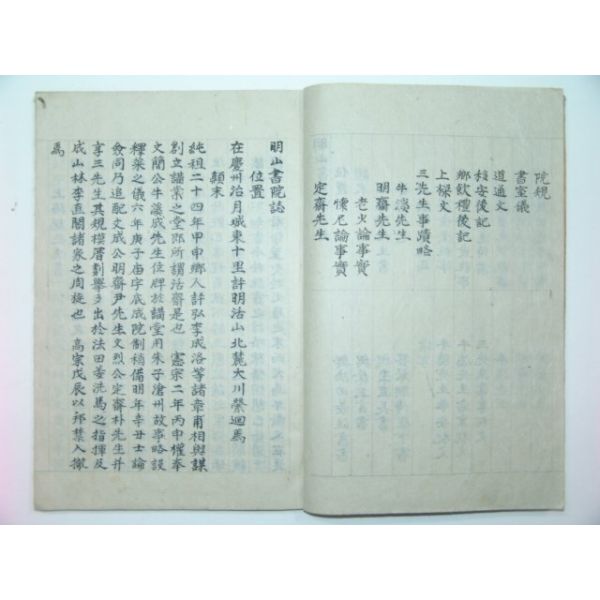 院規
書室議
道通文
移安後記
鄉飲禮後記
上樑文
三先生事蹟略
牛溪先生
明齋先生
老火論事實
懷尼論事實
定齋先生
明山書院誌
位置
在慶州治月城東十里許明活山北麓大川縈迴焉
顛末
純祖二十四年甲申鄉人許弘李成洛等諸章甫相與謀
創立講業之堂即所謂活齋是也 憲宗二年丙申權奉
文簡公牛溪成先生位牌於講堂用朱子滄州故事略設
釋菜之儀六年庚子庙宇底成院制稍備明年辛丑士論
僉同乃追配文成公明齋尹先生文烈公定齋朴先生并
享三先生其規模層劃擧多出於法田姜洗馬之指揮及
成山林李直閣諸家之周旋也 高宗戊辰以邦禁入撤
焉